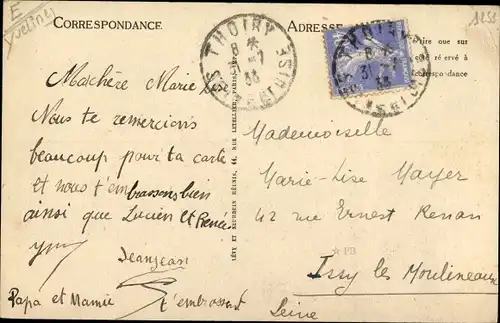 E
Yvelines
CORRESPONDANCE
THOIRY
8 *
-7
33
SEINE ET OISE
ADRESSE
THOIRY
8 *
31 -7
33
SEINE ET OISE
1255
Ma chère Marie
Nous te remercions
beaucoup pour ta carte
et nous t'embrassons bien
ainsi que Lucien et Renée
Jeanjean
Papa et Mamie t'embrassent
LÉVY ET NEURDEIN RÉUNIS, 44, RUE LETELLIER, PARIS
Mademoiselle
Marie-Lise Mayer
42 rue Ernest Renan
* PB
Issy les Moulineaux
Seine